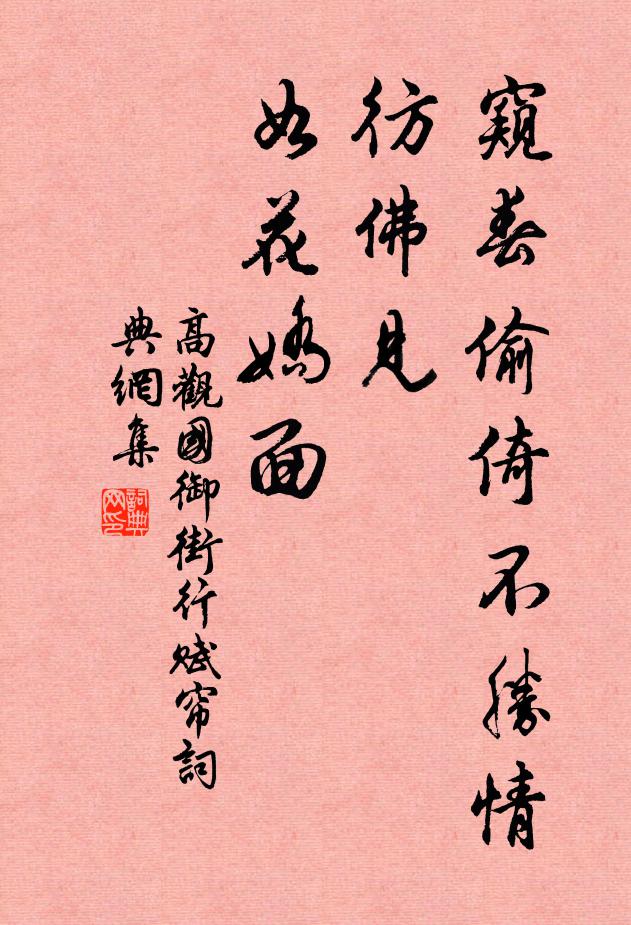 窺春偷倚不勝情
彷佛見
如花嬌面
高觀國御街行賦帘詞
典網集
詞典
网印